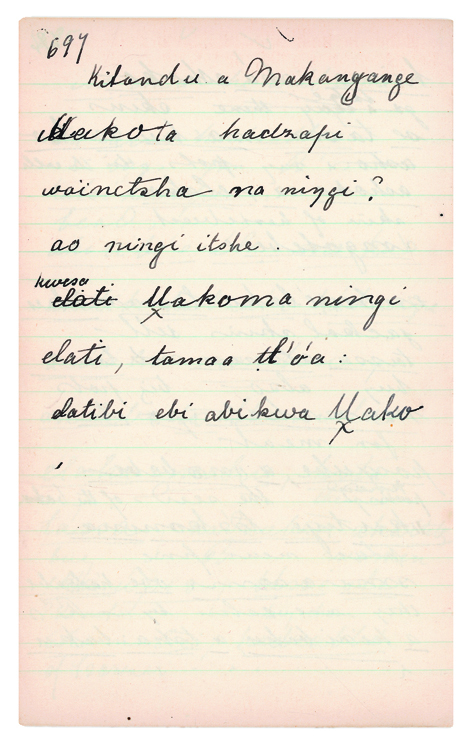 697
Kitandu a Makangange
Makota hadzapi
wainetsha na ningi?
ao ningi itshe.
hwesa
elati Makoma ningi
elati, tamaa tl'óa:
datibi ebi abikwa Mako
,